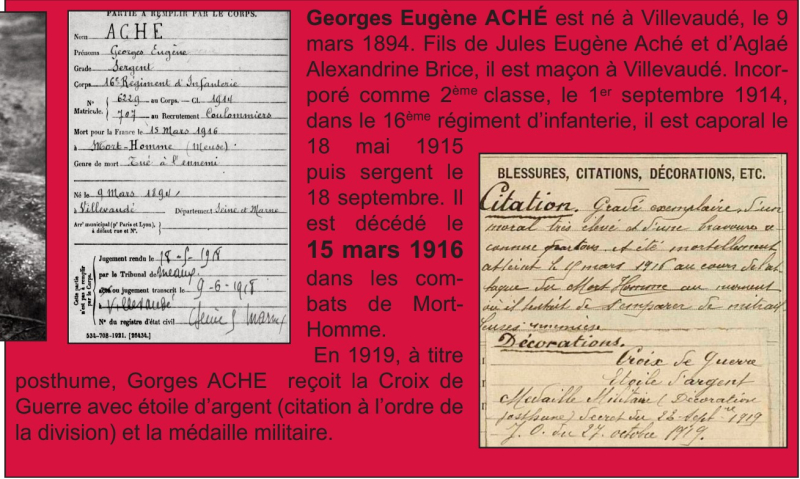 PARTIE A REMPLIR PAR LE CORPS.
Nom ACHE
Prénoms Georges Eugène
Grade Sergent
Corps 16e Régiment d'Infanterie
N° 6229 au Corps. — Cl. 1914
Matricule. 707 au Recrutement Coulommiers
Mort pour la France le 15 Mars 1916
à Mort-Homme (Meuse)
Genre de mort Tué à l'ennemi
Né le 9 Mars 1894
à Villevaudé Département Seine et Marne
Arrt municipal (pr Paris et Lyon),
à défaut rue et N°.
Cette partie
n'est pas à remplir
par le Corps.
Jugement rendu le 18-5-1918
par le Tribunal de Meaux
acte ou jugement transcrit le 9-6-1918
à Villevaudé
N° du registre d'état civil (Seine & Marne)
534-708-1921. [26434.]
Georges Eugène ACHÉ est né à Villevaudé, le 9
mars 1894. Fils de Jules Eugène Aché et d'Aglaé
Alexandrine Brice, il est maçon à Villevaudé. Incor-
poré comme 2ème classe, le 1er septembre 1914,
dans le 16ème régiment d'infanterie, il est caporal le
18 mai 1915
puis sergent le
18 septembre. Il
est décédé le
15 mars 1916
dans les com-
bats de Mort-
Homme.
En 1919, à titre
posthume, Gorges ACHE reçoit la Croix de
Guerre avec étoile d'argent (citation à l'ordre de
la division) et la médaille militaire.
BLESSURES, CITATIONS, DÉCORATIONS, ETC.
Citation. Gradé exemplaire, d'un
moral très élevé et d'une bravoure
connue partout. A été mortellement
atteint le 15 mars 1916 au cours de l'at-
taque du Mort Homme au moment
où il tentait de s'emparer de mitrail-
leuses ennemies
Décorations.
Croix de Guerre
Etoile d'argent
Médaille Militaire (Décoration
posthume) Décret du 22 Septbre 1919
J. O. du 27 octobre 1919.